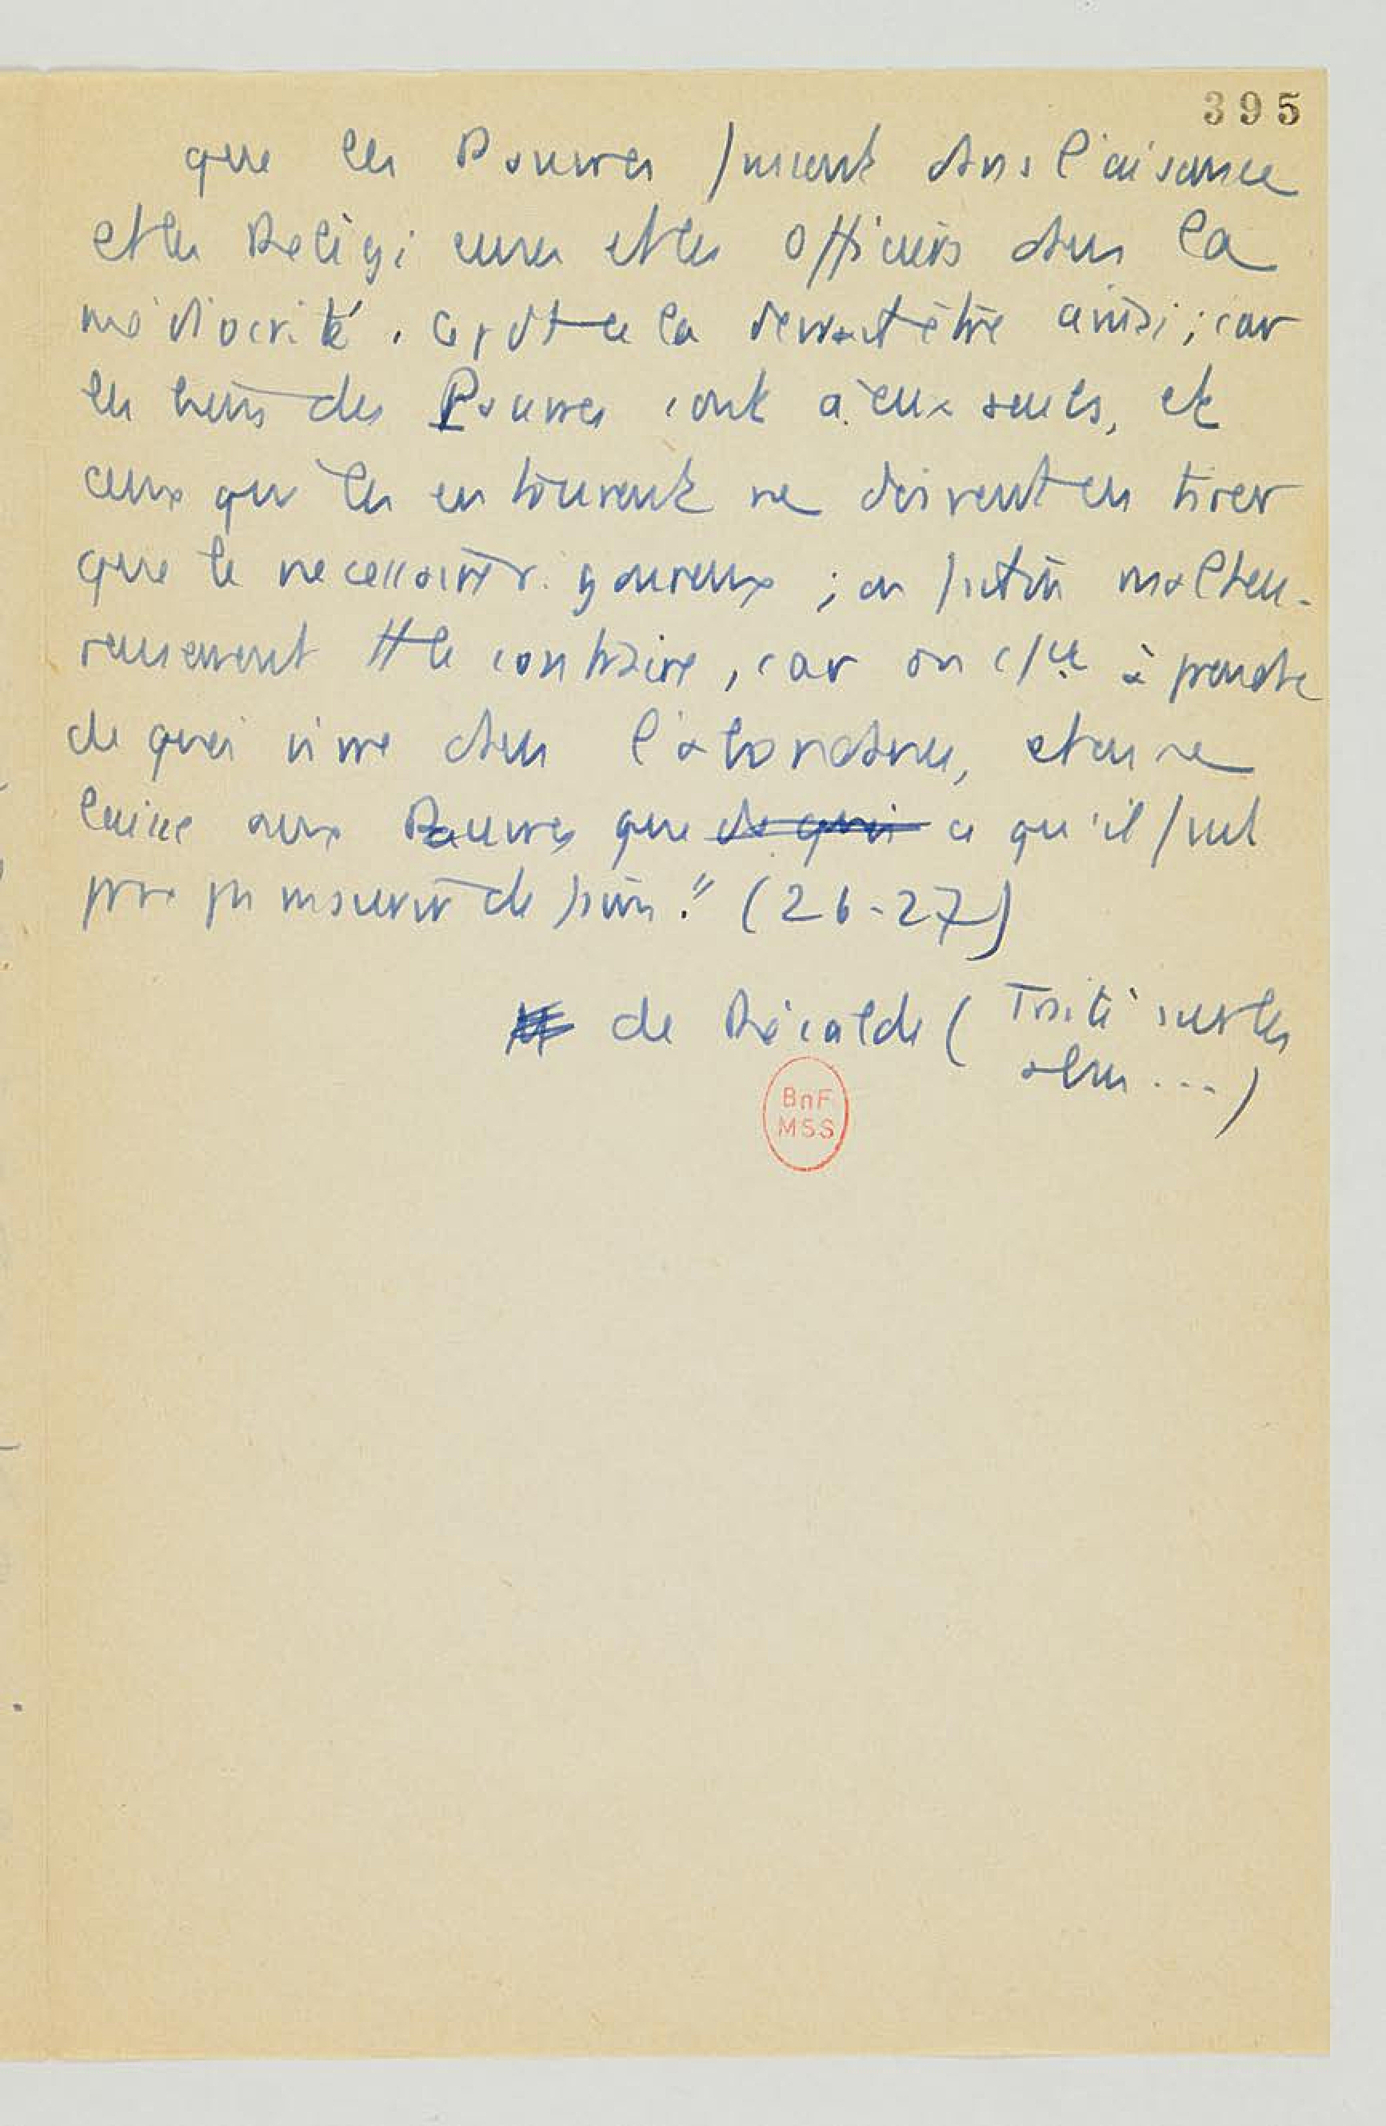 395
que les Pauvres fussent dans l'aisance
et les Religieuses et les Officiers dans la
médiocrité. Cepdt cela devrait être ainsi ; car
les biens des Pauvres sont à eux seuls, et
ceux qui les entourent ne doivent en tirer
que le necessaire rigoureux ; on fait malheu-
reusement tt le contraire, car on cce à prendre
de quoi vivre dans l'abondance, et on ne
laisse aux Pauvres que de quoi ce qu'il faut
pour pas mourir de faim." (26-27)
de Récalde ( Traité sur les
abus ... )
BnF
MSS